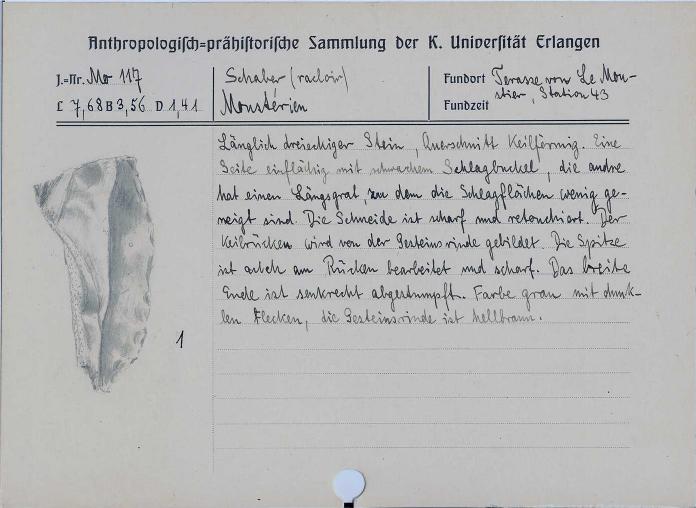 Anthropologisch=prähistorische Sammlung der K. Universität Erlangen
J.=Nr. Mo 117
L 7,68 B 3,56 D 1,41
Schaber (racloir)
Moustérien
Fundort Terasse von Le Mou-
stier, Station 43
Fundzeit
Länglich dreieckiger Stein, Querschnitt Keilförmig. Eine
Seite einflächig mit schwachem Schlagbuckel, die andre
hat einen Längsgrat zu dem die Schlagflächen wenig ge-
neigt sind. Die Schneide ist scharf und retouchiert. Der
Keilrücken wird von der Gesteinsrinde gebildet. Die Spitze
ist auch am Rücken bearbeitet und scharf. Das breite
Ende ist senkrecht abgestumpft. Farbe grau mit dunk-
len Flecken, die Gesteinsrinde ist hellbraun.
1